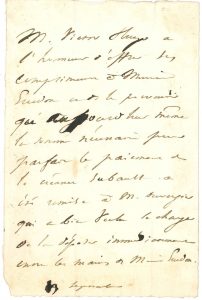 M. Victor Hugo a
l'honneur d'offrir ses
compliments à M
et de le prévenir
qu'aujourd'hui même
la somme nécessaire pour
parfaire le paiement de
la créance
été remise à M.
qui a bien voulu se charge
de la déposer immédiatement
entre les mains de M